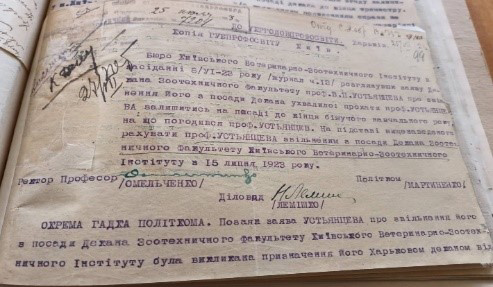 25
ДО УКРГОЛОВПРОФОСВІТИ Харьків
Копія ГУБПРОФОСВІТУ Київ.
99
Бюро Київського Ветеринарно-Зоотехничного Інституту в
засіданні 8/VI-22 року /журнал ч.15/ розглянувши заяву
Декана Зоотехничного Факультету проф. УСТЬЯНЦЕВА про
його в посади Декана ухвалили прохати проф.
залишитись на посаді до кінця біжучого навчального року
на що погодився проф.УСТЬЯНЦЕВ. На підставі вищенаведеного
рахувати проф.УСТЬЯНЦЕВА звільненим в посади Декана Зоотех-
ничного Факультету Київського Ветеринарно-Зоотехничного
Інституту в 15 липня 1923 року.
Ректор Професор
/ОМЕЛЬЧЕНКО/ Політком
/МАРТИНЕНКО/
Діловод
/ЛЕМІШКО/
ОКРЕМА ГАДКА ПОЛІТКОМА. Позаяк заява УСТЬЯНЦЕВА про звільнення його
в посади Декана Зоотехничного Факультету Київського Ветеринарно-Зоотех-
ничного Інституту була викликана призначення його Харьковом деканом